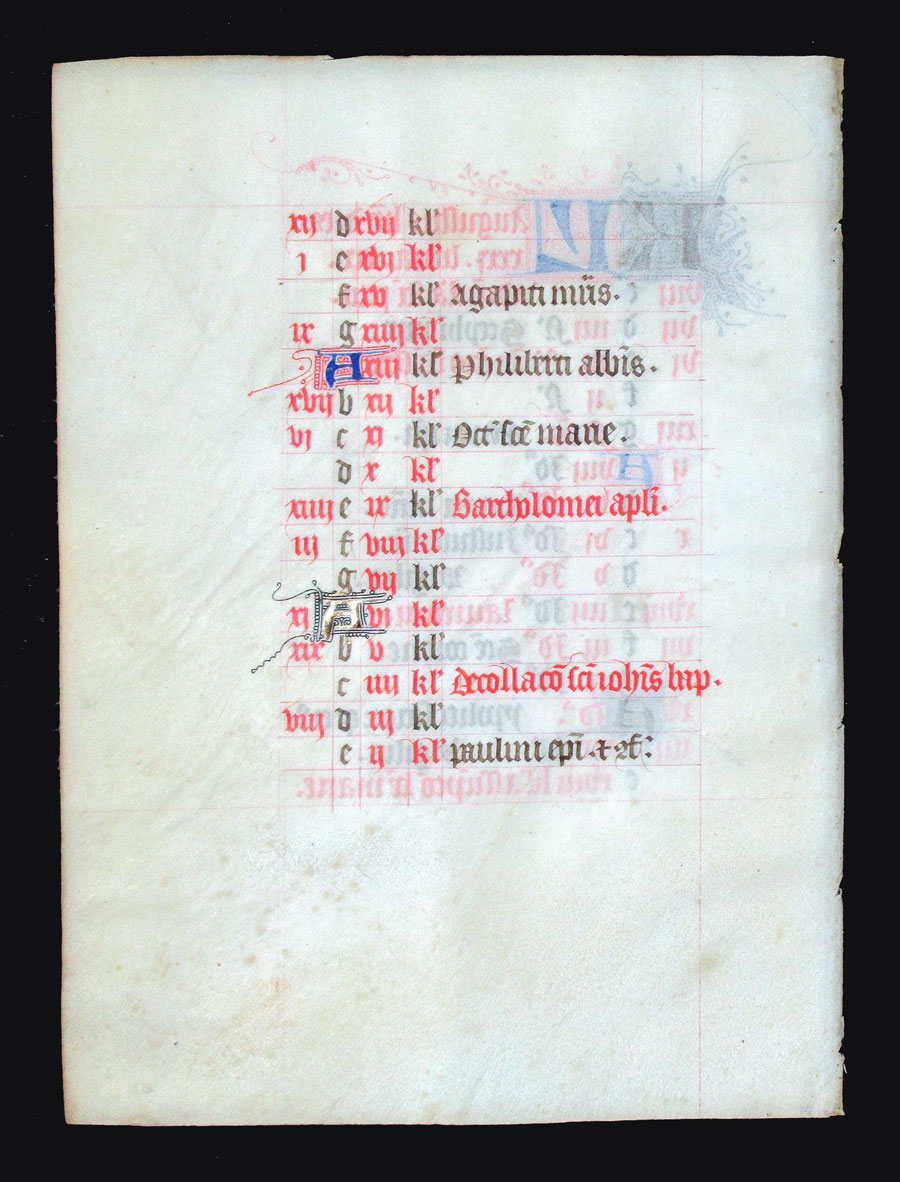 xij d xvij kl'
j e xvj kl'
f xv kl' Agapiti mr̄is.
ix g xiiij kl'
A xiij kl' Philiberti abb̄is.
xvij b xij kl'
vj c xj kl' Oct' sc̄e marie.
d x kl'
xiiij e ix kl' Bartholomei apl̄i.
iij f viij kl'
g vij kl'
xj A vj kl'
xix b v kl'
c iiij kl' Decollacō sc̄i ioh̄is bap.
viij d iij kl'
e ij kl' paulini ep̄i